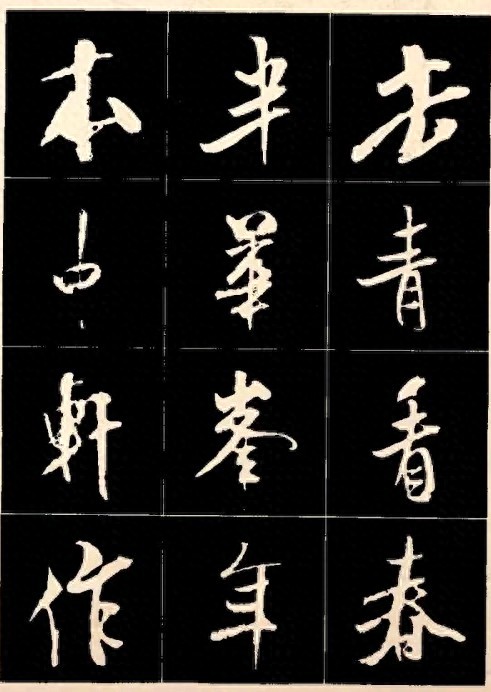 老青看春
半華峯年
本中軒作